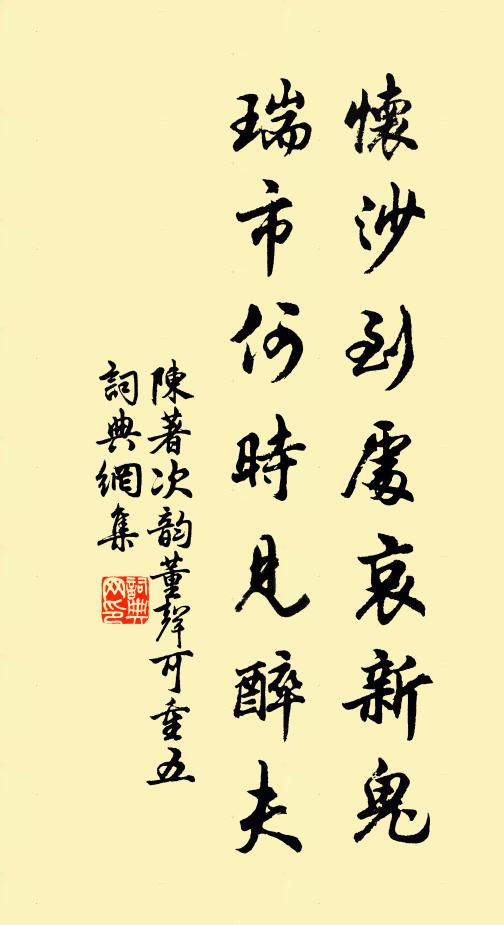 懷沙到處哀新鬼
瑞市何時見醉夫
陳著次韵董聲可重五
詞典網集
詞典网印